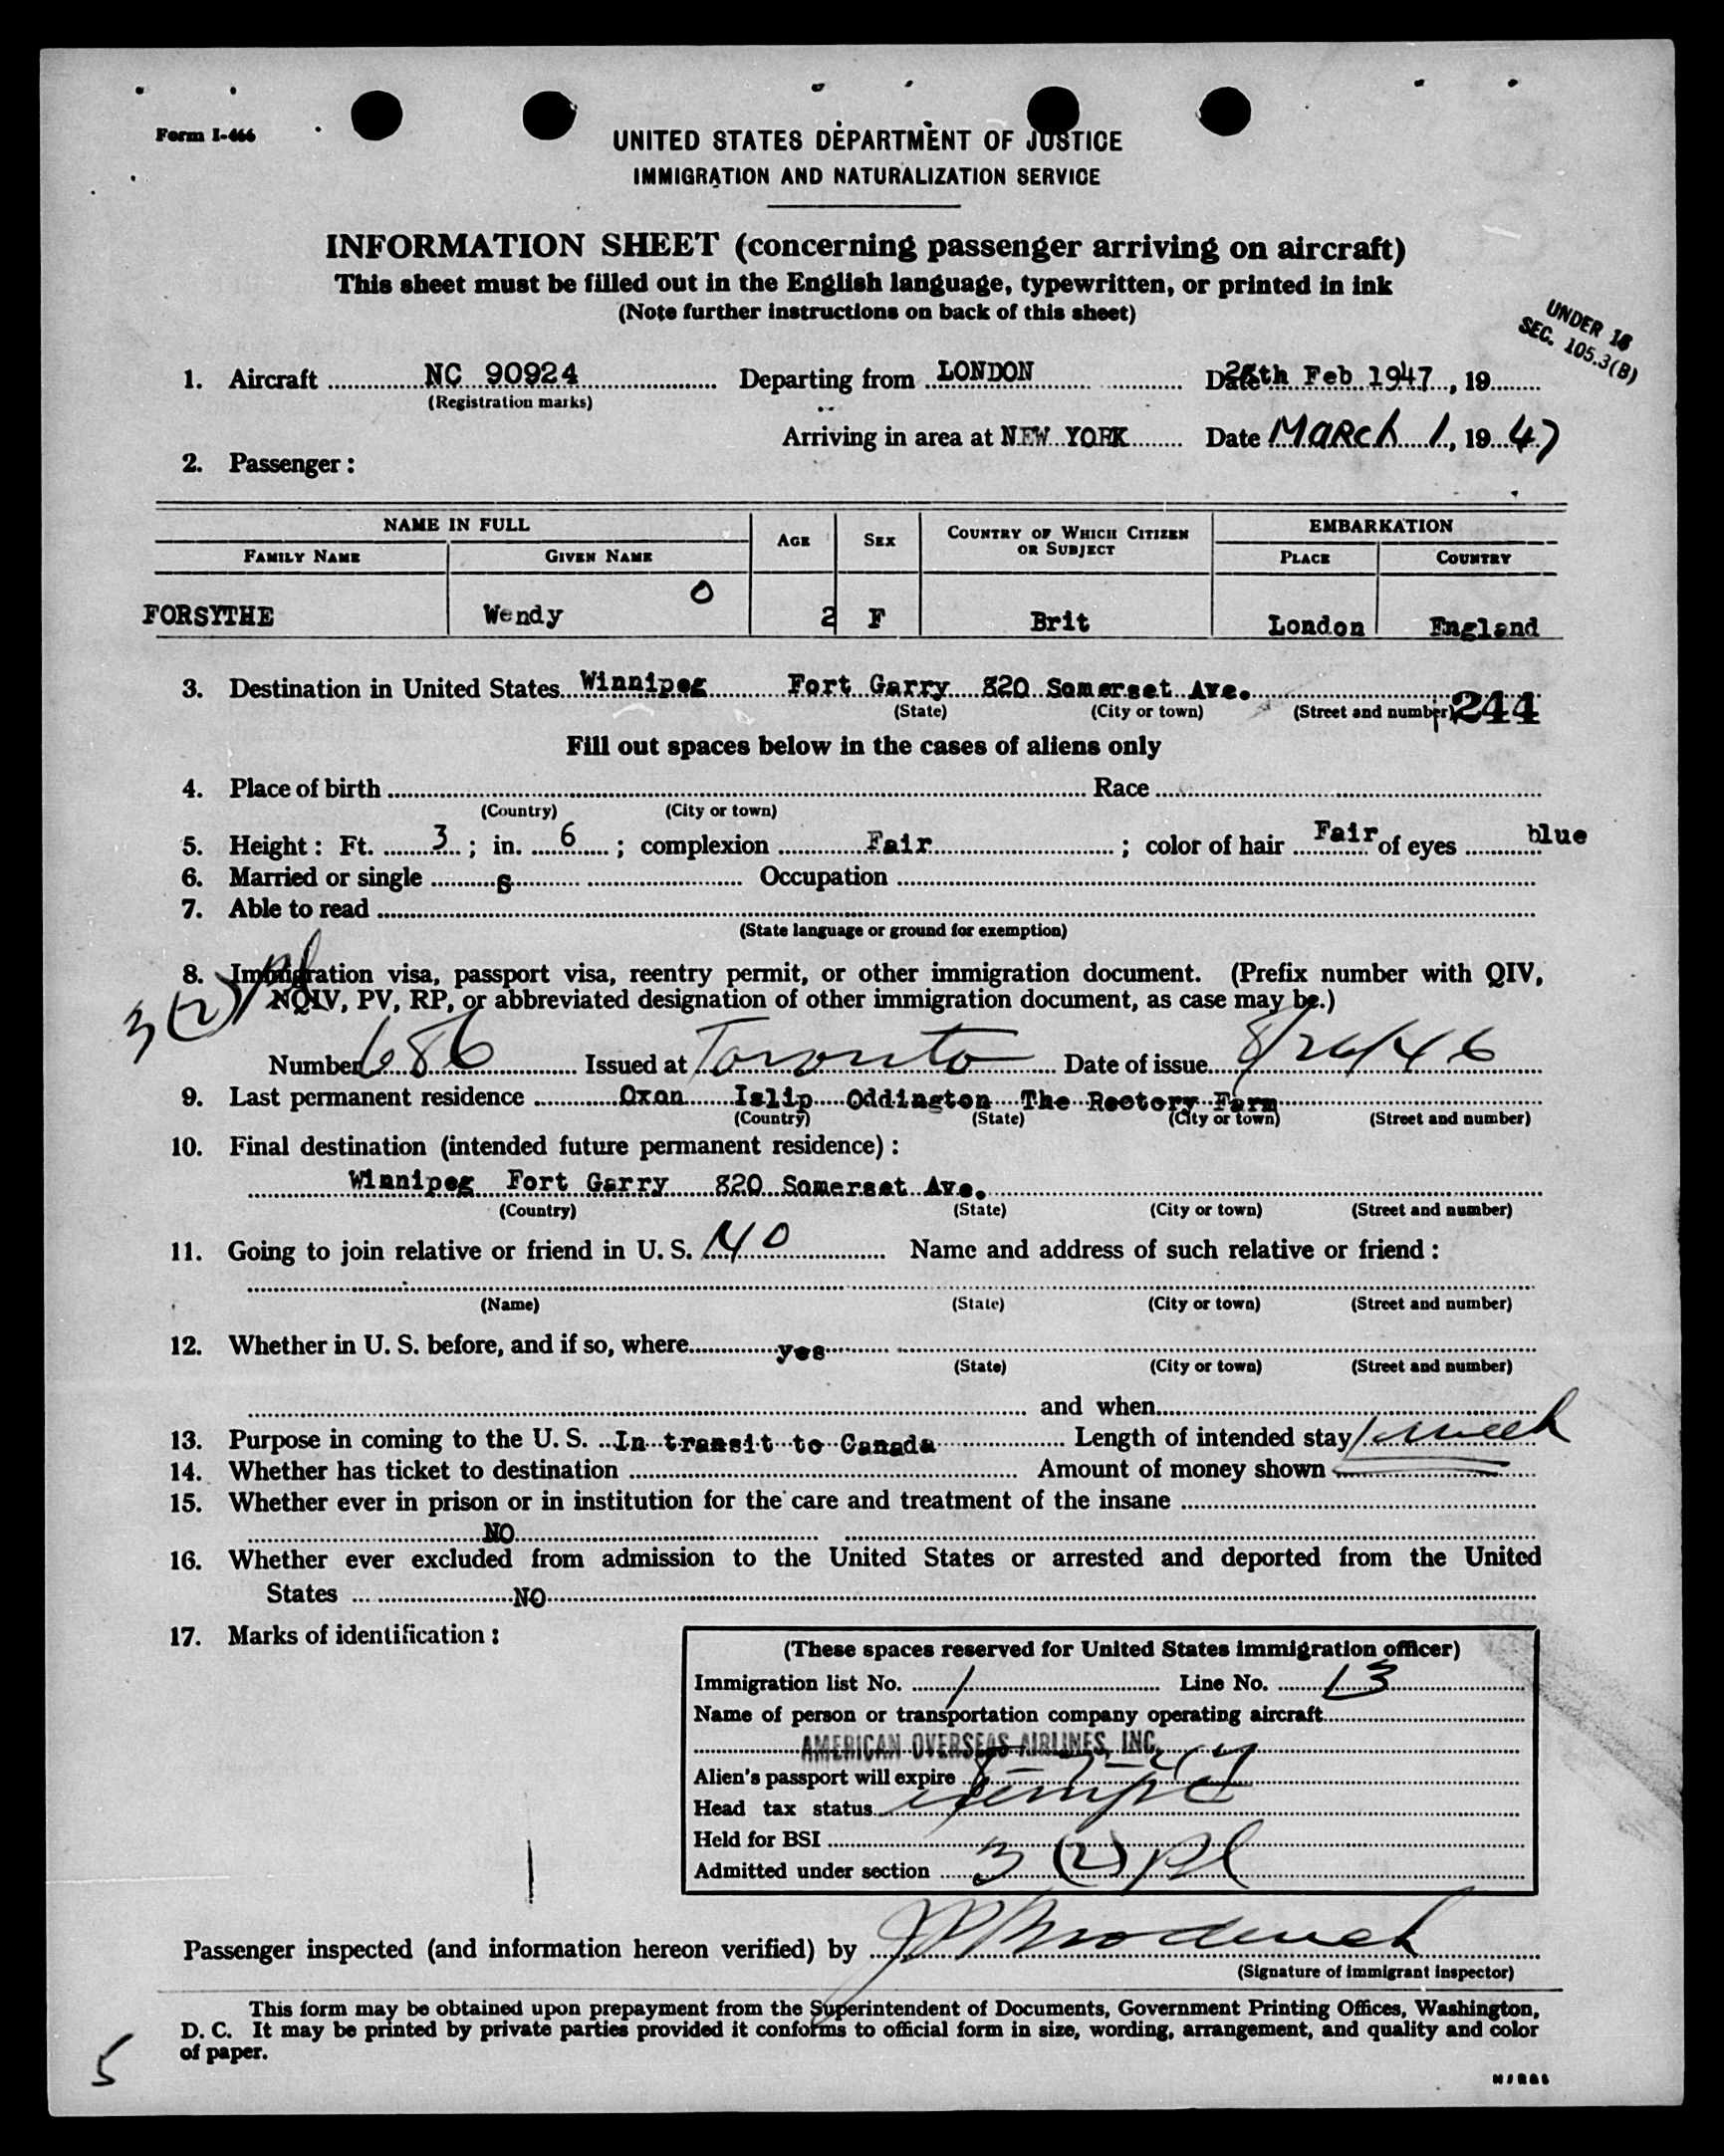 Form I-466
UNITED STATES DEPARTMENT OF JUSTICE
IMMIGRATION AND NATURALIZATION SERVICE
INFORMATION SHEET (concerning passenger arriving on aircraft)
This sheet must be filled out in the English language, typewritten, or printed in ink
(Note further instructions on back of this sheet)
UNDER 18
SEC. 105.3(B)
1. Aircraft NC 90924 Departing from LONDON Date Feb 1947, 19
(Registration marks)
Arriving in area at NEW YORK Date MARCH 1, 1947
2. Passenger:
NAME IN FULL AGE SEX COUNTRY OF WHICH CITIZEN OR SUBJECT EMBARKATION
FAMILY NAME GIVEN NAME PLACE COUNTRY
0
FORSYTHE Wendy 2 F Brit London England
3. Destination in United States Winnipeg Fort Garry 820 Somerset Ave.
(State) (City or town) (Street and number) 244
Fill out spaces below in the cases of aliens only
4. Place of birth Race
(Country) (City or town)
5. Height: Ft. 3; in. 6; complexion Fair; color of hair Fair of eyes blue
6. Married or single s Occupation
7. Able to read
(State language or ground for exemption)
8. Immigration visa, passport visa, reentry permit, or other immigration document. (Prefix number with QIV,
NQIV, PV, RP, or abbreviated designation of other immigration document, as case may be.)
3(2)
Number 686 Issued at Toronto Date of issue 8/26/46
9. Last permanent residence Oxon Islip Oddington The Rectory Farm
(Country) (State) (City or town) (Street and number)
10. Final destination (intended future permanent residence):
Winnipeg Fort Garry 820 Somerset Ave.
(Country) (State) (City or town) (Street and number)
11. Going to join relative or friend in U. S. NO Name and address of such relative or friend:
(Name) (State) (City or town) (Street and number)
12. Whether in U. S. before, and if so, where yes
(State) (City or town) (Street and number)
and when
13. Purpose in coming to the U. S. In transit to Canada Length of intended stay 1 week
14. Whether has ticket to destination Amount of money shown
15. Whether ever in prison or in institution for the care and treatment of the insane
NO
16. Whether ever excluded from admission to the United States or arrested and deported from the United
States NO
17. Marks of identification:
(These spaces reserved for United States immigration officer)
Immigration list No. 1 Line No. 13
Name of person or transportation company operating aircraft
AMERICAN OVERSEAS AIRLINES, INC.
Alien's passport will expire
Head tax status exempt
Held for BSI
Admitted under section 3 (2)
Passenger inspected (and information hereon verified) by
(Signature of immigrant inspector)
This form may be obtained upon prepayment from the Superintendent of Documents, Government Printing Offices, Washington,
D. C. It may be printed by private parties provided it conforms to official form in size, wording, arrangement, and quality and color
of paper.
5